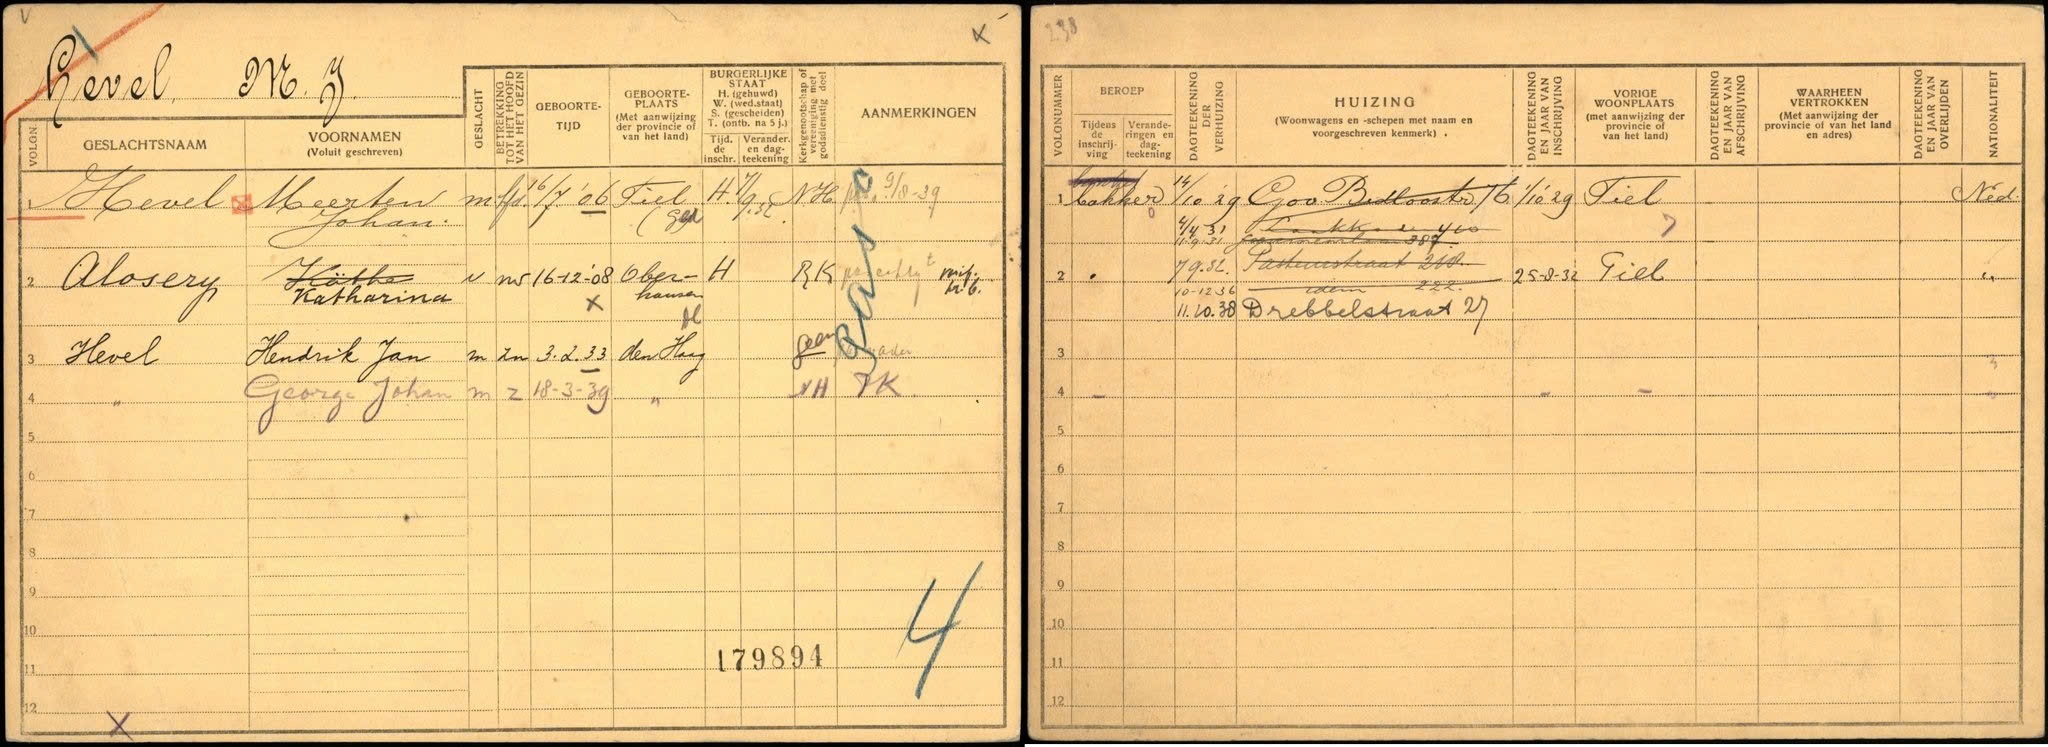 Hevel, M. J.
VOLGN.
GESLACHTSNAAM
VOORNAMEN
(Voluit geschreven)
GESLACHT
BETREKKING TOT HET HOOFD VAN HET GEZIN
GEBOORTE-
TIJD
GEBOORTE-
PLAATS
(Met aanwijzing
der provincie of
van het land)
BURGERLIJKE
STAAT
H. (gehuwd)
W. (wed.staat)
S. (gescheiden)
T. (ontb. na 5 j.)
Tijd.
de
inschr.
Verander.
en dag-
teekening
Kerkgenootschap of
vereeniging met
godsdienstig doel
AANMERKINGEN
1 Hevel Meerten m hfd 16/7 '06 Tiel H 7/9.32 NH 9/8-39
Johan. (Gld
2 Alosery Käthe v m 16-12-'08 Ober- H RK
Katharina x hausen
Dl
gas
3 Hevel Hendrik Jan m zn 3.2.33 den Haag geen vader
4 " George Johan m z 18-3-39 " NH PK.
5
6
7
8
9
10
11
12
179894
4
X
238
VOLGNUMMER
BEROEP
Tijdens
de
inschrij-
ving
Verande-
ringen en
dag-
teekening
DAGTEEKENING
DER
VERHUIZING
HUIZING
(Woonwagens en -schepen met naam en
voorgeschreven kenmerk) .
DAGTEEKENING
EN JAAR VAN
INSCHRIJVING
VORIGE
WOONPLAATS
(met aanwijzing der
provincie of
van het land)
DAGTEEKENING
EN JAAR VAN
AFSCHRIJVING
WAARHEEN
VERTROKKEN
(Met aanwijzing der
provincie of van het land
en adres)
DAGTEEKENING
EN JAAR VAN
OVERLIJDEN
NATIONALITEIT
1 bakker 14/10 '29 Gov Bidloostr 76 1/10 29 Tiel Ned.
4/4 31 Laakkade 400
11.9.31 387
2 7 9.32. Pasteurstraat 218. 25-8-32 Tiel "
10-12-36 idem 222.
11.10.38 Drebbelstraat 27
3
4 - - - "
5
6
7
8
9
10
11
12